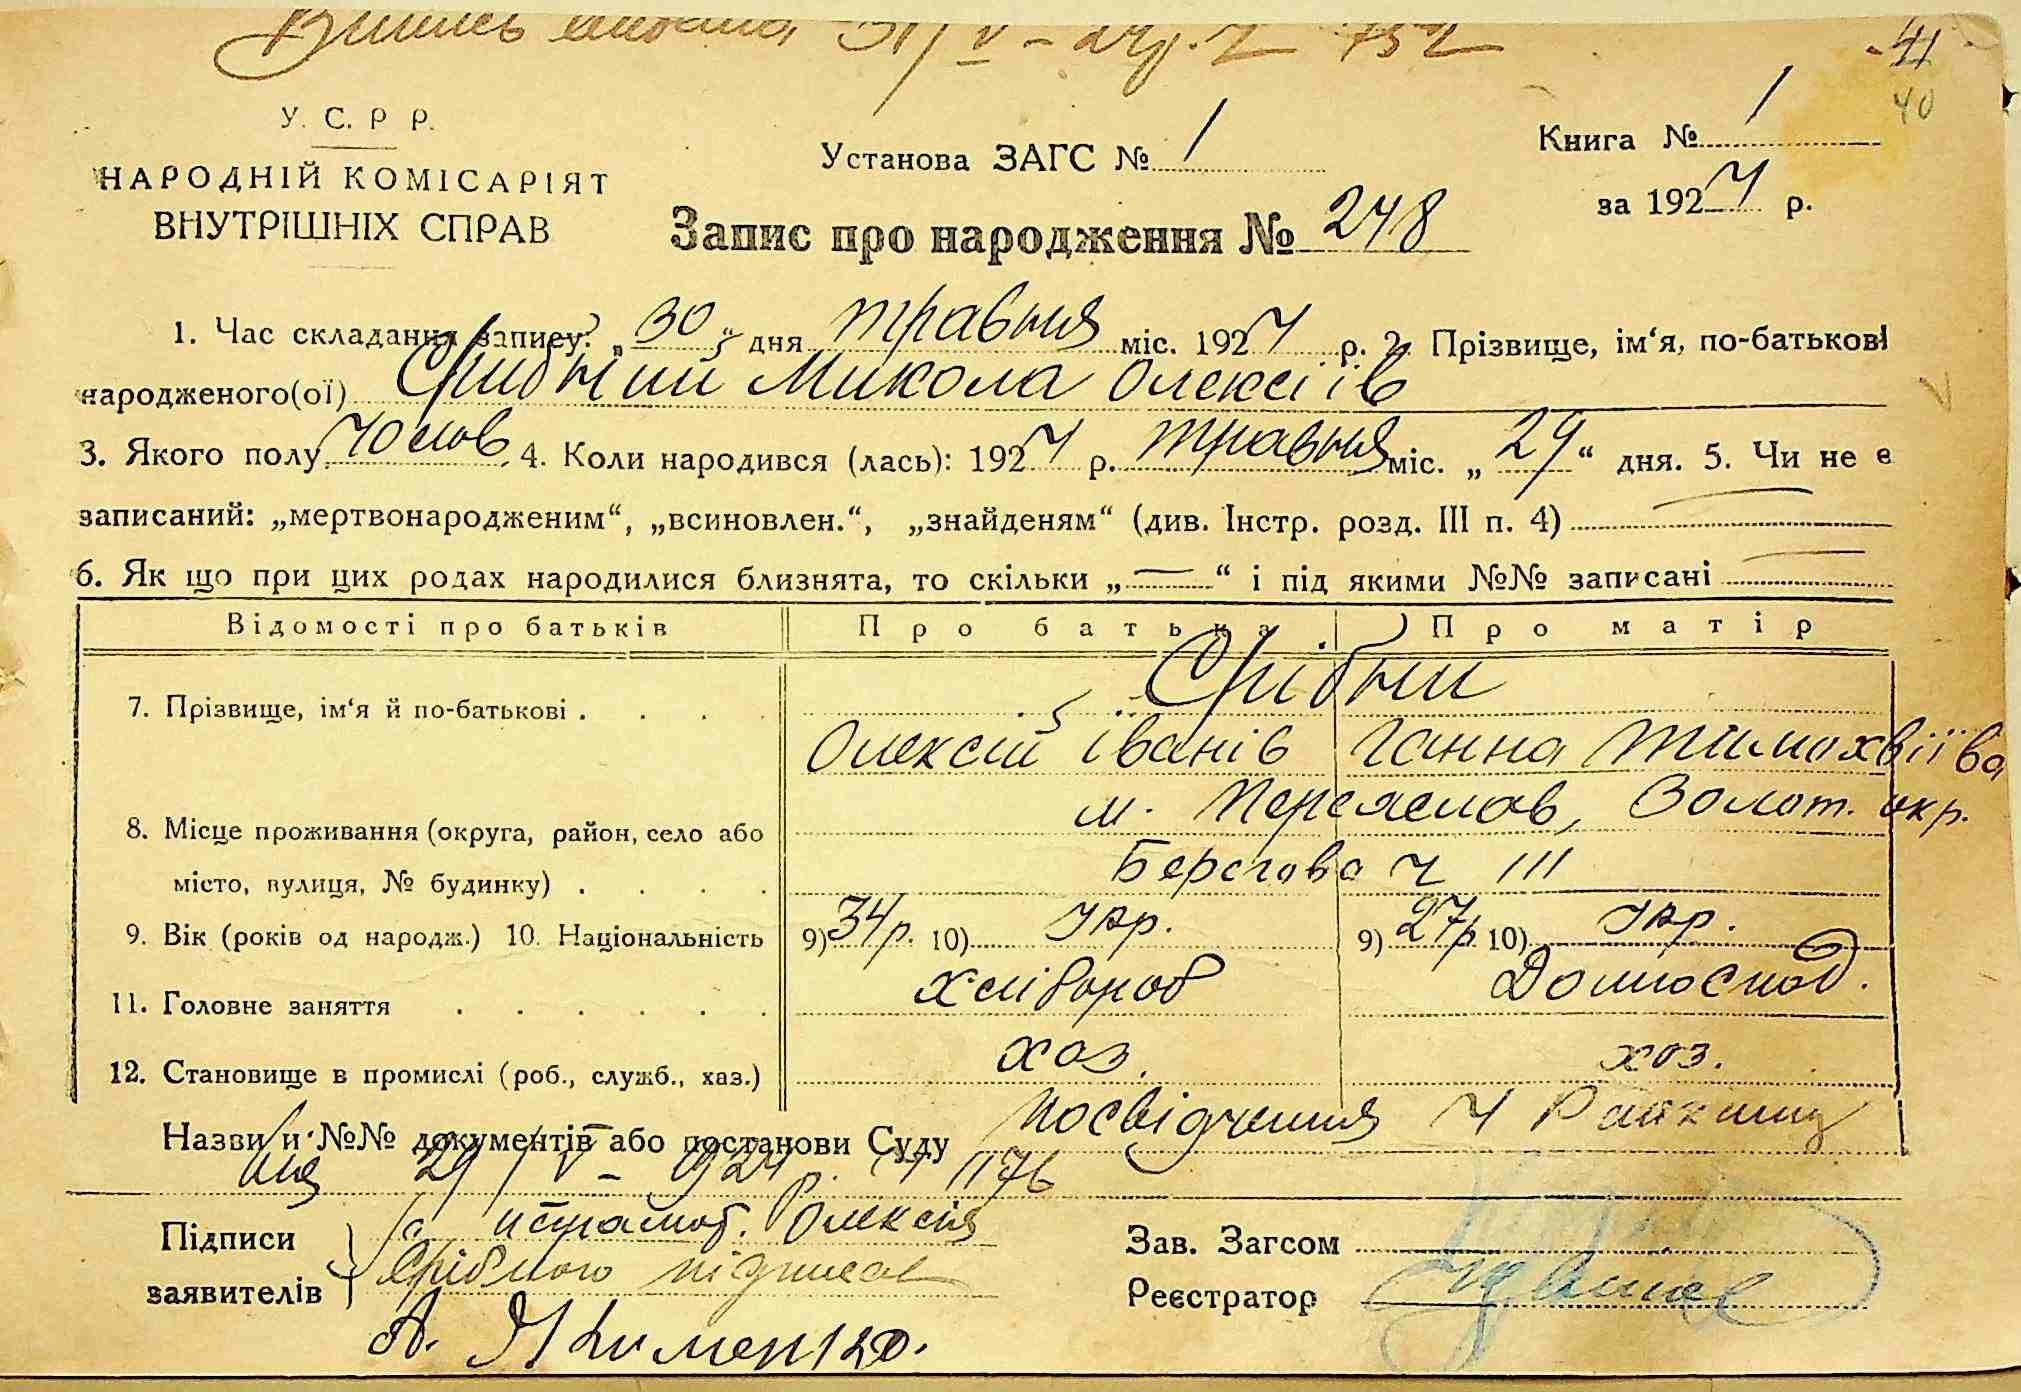 Випись видана 31/V – 24 р. Ч 752
41
40
У. С. Р Р.
НАРОДНІЙ КОМІСАРІЯТ
ВНУТРІШНІХ СПРАВ
Установа ЗАГС № 1
Книга № 1
за 1924 р.
Запис про народження № 248
1. Час складання запису: „30“ дня травня міс. 1924 р. 2. Прізвище, ім‘я, по-батькові
народженого(ої) Срибний Микола Олексіїв
3. Якого полу чолов. 4. Коли народився (лась): 1924 р. травня міс. „29“ дня. 5. Чи не є
записаний: „мертвонародженим“, „всиновлен.“, „знайденям“ (див. Інстр. розд. III п. 4) —
6. Як що при цих родах народилися близнята, то скільки „—“ і під якими №№ записані —
Відомості про батьків Про батька Про матір
7. Прізвище, ім‘я й по-батькові . . . . Срібний
Олексій Іванів Ганна Тимохвіїва
8. Місце проживання (округа, район, село або м. Переяслав, Золот. окр.
місто, вулиця, № будинку) . . . . Берегова Ч 111
9. Вік (років од народж.) 10. Національність 9) 34 р. 10) Укр. 9) 27 р. 10) Укр.
11. Головне заняття . . . . . . Хлібороб Домоспод.
12. Становище в промислі (роб., служб., хаз.) хоз. хоз.
Назви и №№ документів або постанови Суду Посвідчення Ч Райклиц
29/V – 924 р. Ч 1176
Підписи
заявителів
За неграмот. Олексія
Срібного підписав
А. Якименко.
Зав. Загсом
Реєстратор